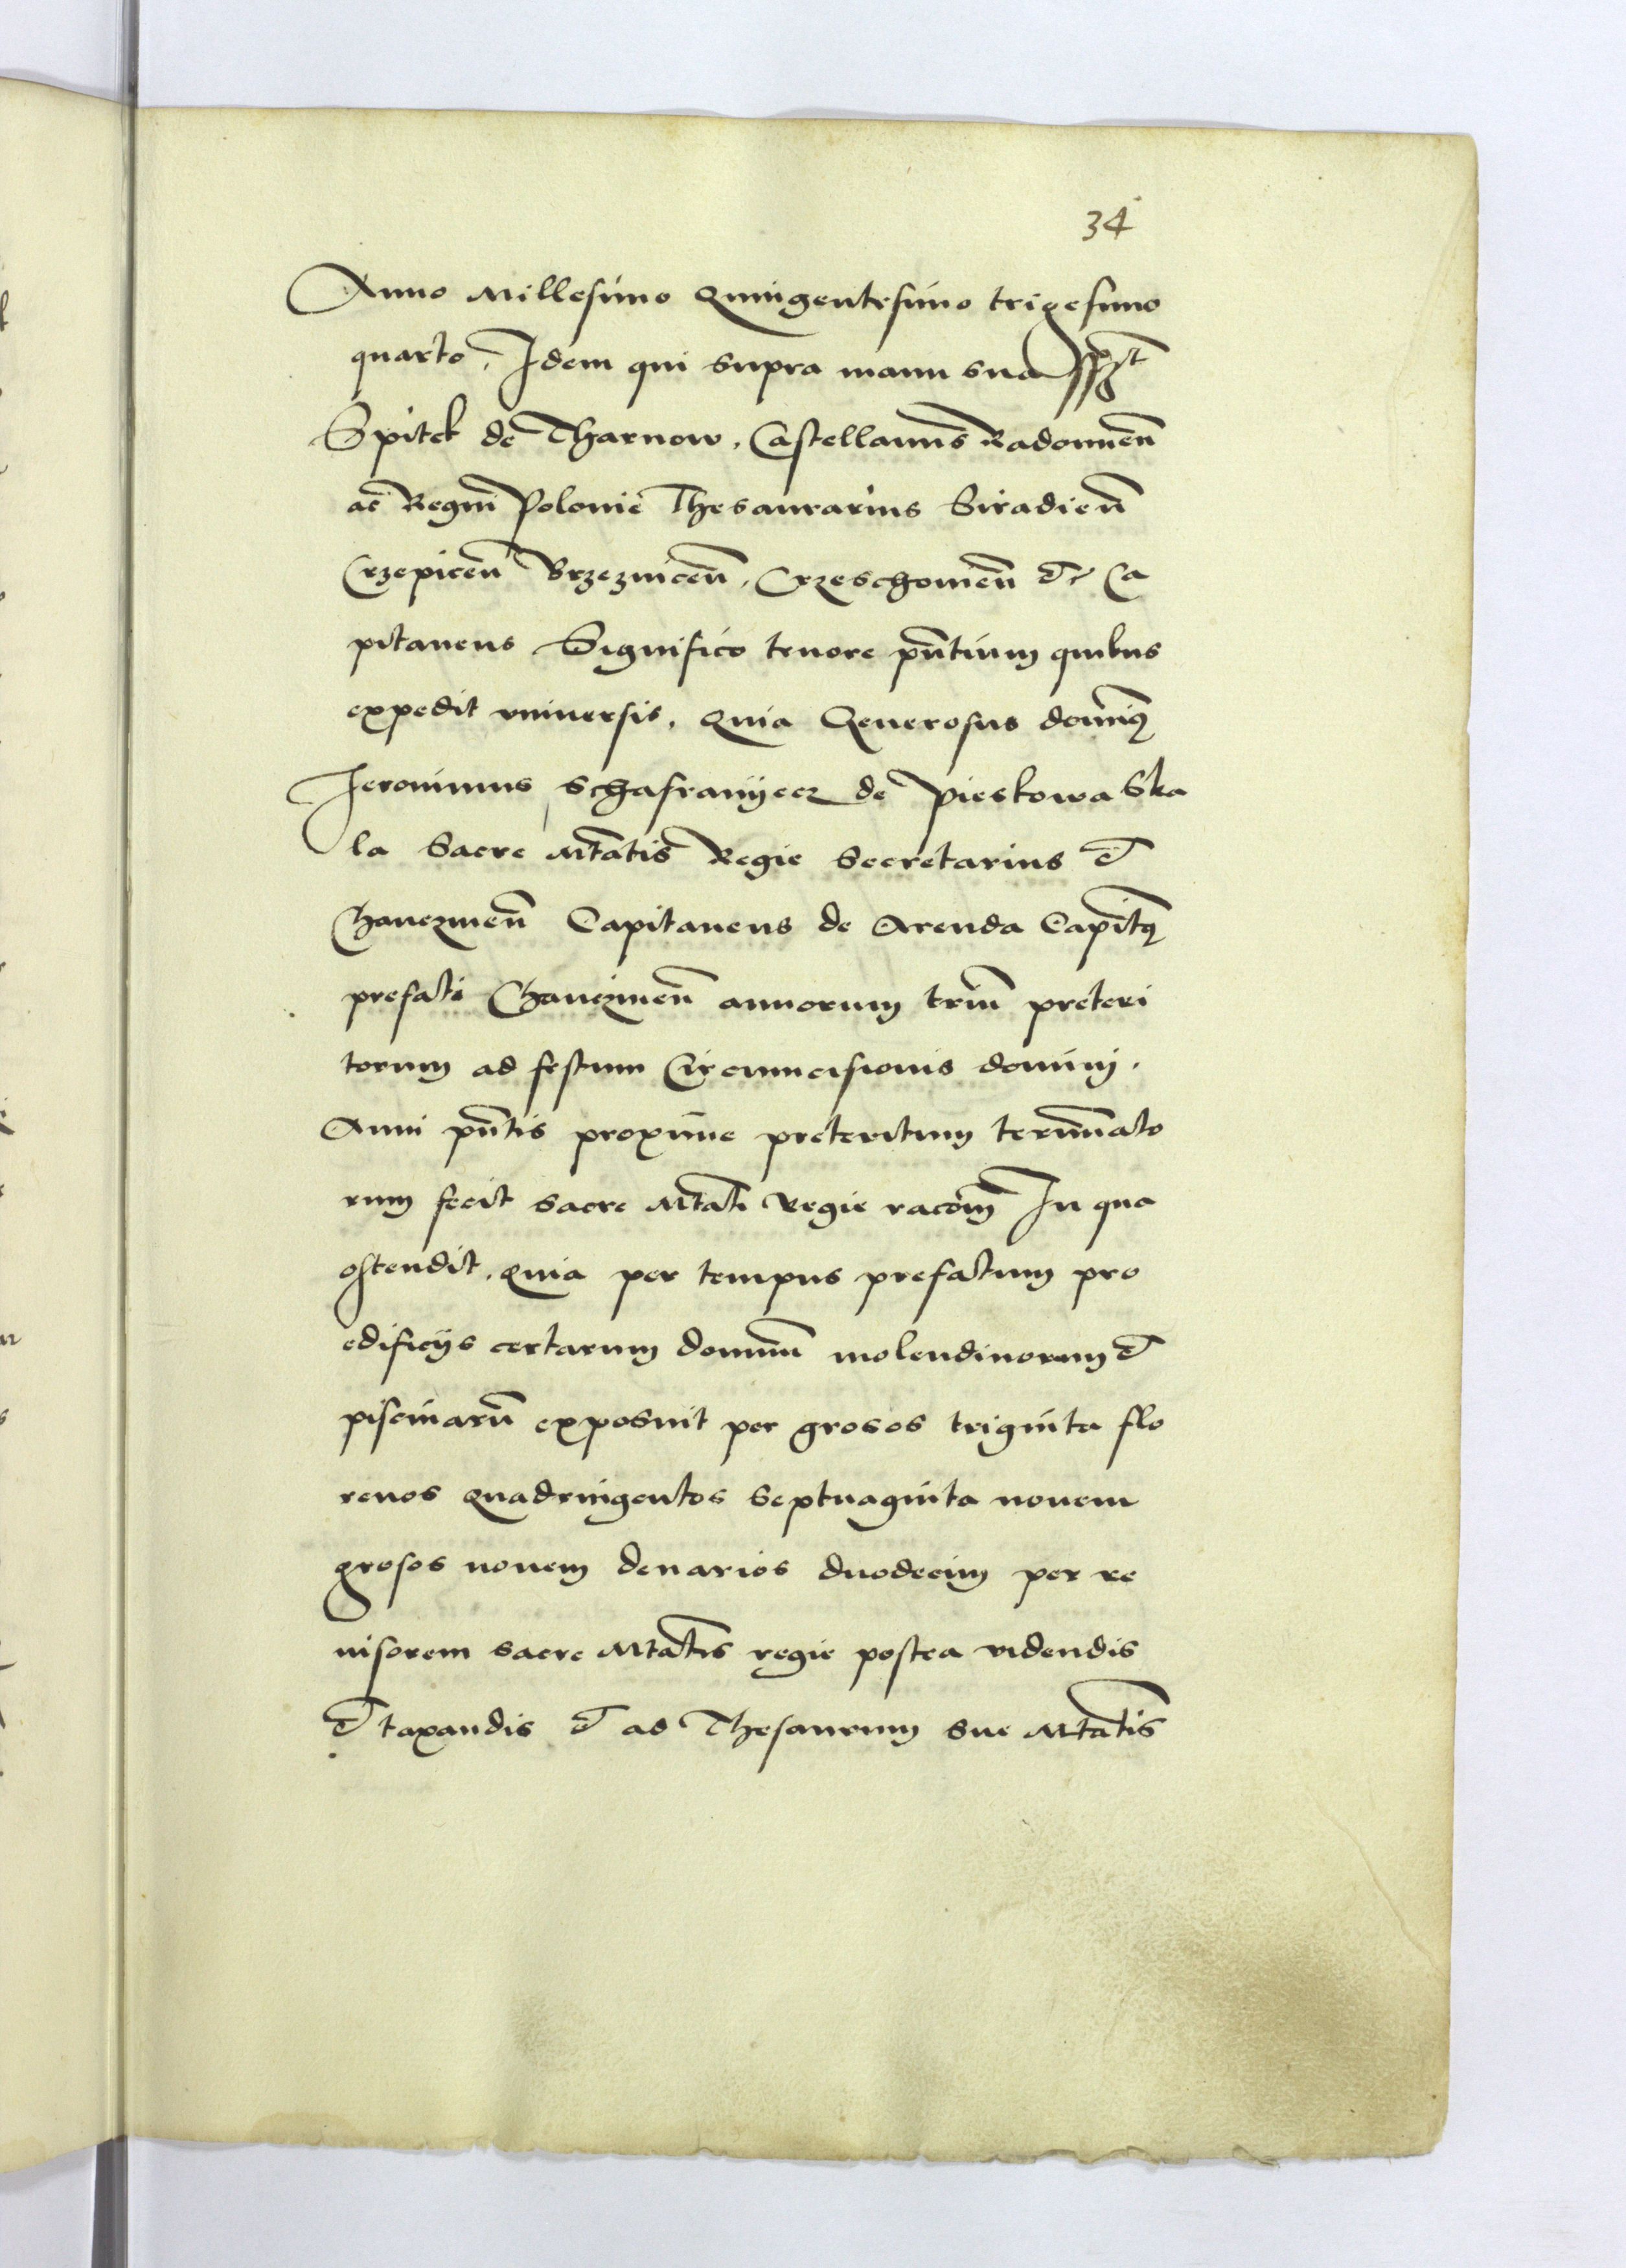 34
Anno Millesimo Quingentesimo trigesimo
quarto. Idem qui supra manu sua sspst
Spitek de Tharnow. Castellanus Radomieñ
ac̃ Regni Poloniẽ Thesaurarius Siradieñ
Crzepiceñ Brzezniceñ. Crzeschouieñ et Ca
pitaneus Significo tenore pñtium quibus
expedit vniuersis. Quia Generosus dominꝰ
Jeronimus Schafranyecz de Pieskowa Ska
la Sacre Mtãtis Regie Secretarius et
Chanczineñ Capitaneus de Arenda Capitꝰ
prefati Chanczineñ annorum triũ preteri
torum ad festum Circumcisionis domini.
Anni pñtis proxime preteritum terminato
rum fecit sacre Mtãti Regie racõm̃ In qua
ostendit. Quia per tempus prefatum pro
edificijs certarum domuũ molendinorum et
piscinarũ exposuit per grosos triginta flo
renos Quadringentos Septuaginta nouem
grosos nouem denarios duodecim per re
uisorem sacre Mtãtis regie postea videndis
et taxandis et ad Thesaurum sue Mtãtis